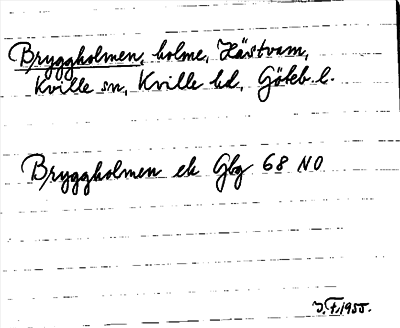 Bryggholmen, holme, Hästvam,
Kville sn, Kville hd, Göteb l.
Bryggholmen ek Gbg 68 NO
J.F. 1955.